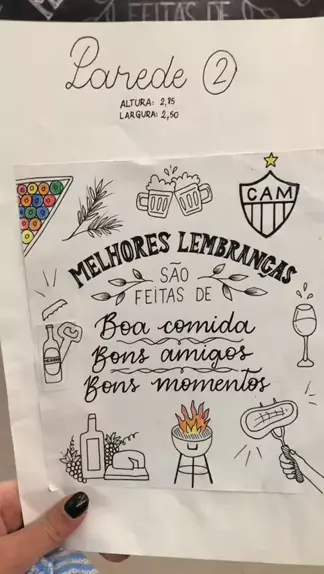 FEITAS DE
Parede 2
ALTURA: 2,75
LARGURA: 2,50
CAM
MELHORES LEMBRANÇAS
SÃO
FEITAS DE
Boa comida
Bons amigos
Bons momentos